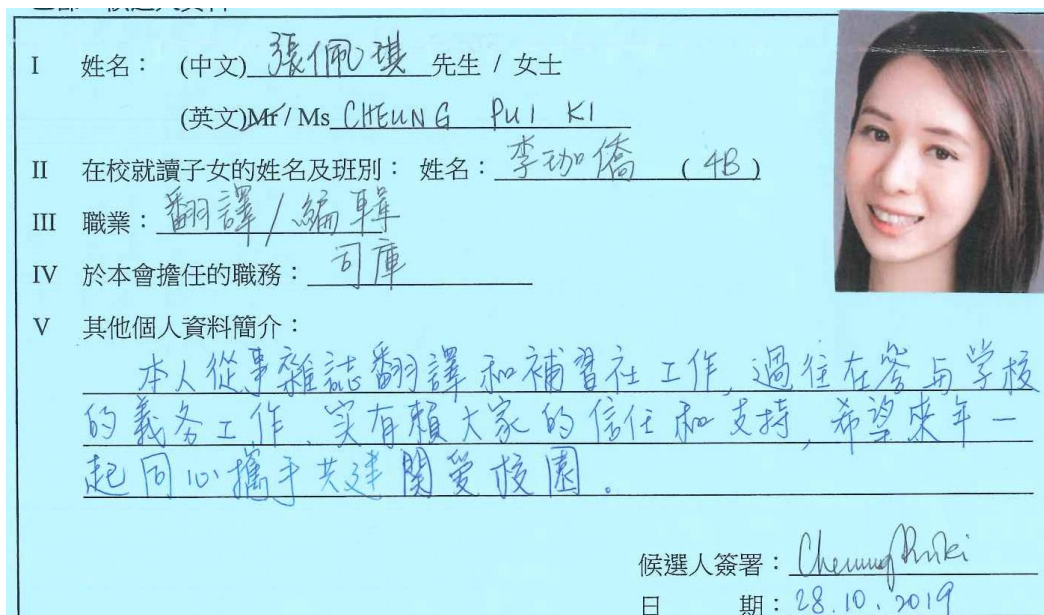 I 姓名： (中文) 張佩琪 先生 / 女士
(英文)Mr / Ms CHEUNG PUI KI
II 在校就讀子女的姓名及班別： 姓名：李珈僑 ( 4B )
III 職業：翻譯 / 編輯
IV 於本會擔任的職務： 司庫
V 其他個人資料簡介：
本人從事雜誌翻譯和補習社工作, 過往在参与学校
的義务工作、实有賴大家的信任和支持, 希望來年一
起同心攜手共建関愛校園。
候選人簽署：Cheung Pui Ki
日 期：28.10.2019